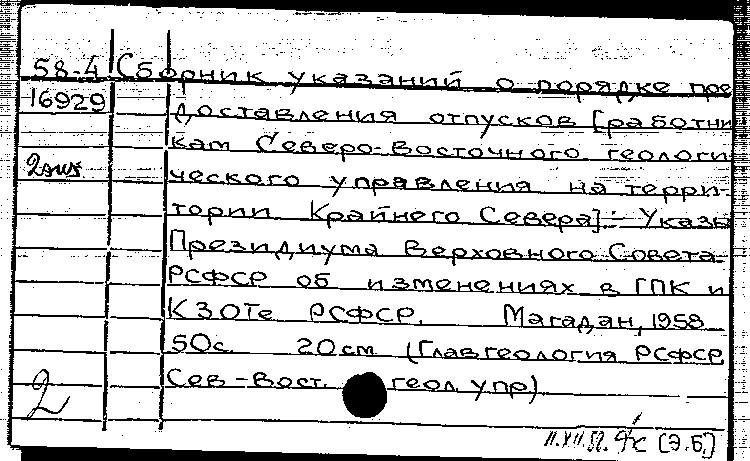 58-4 Сборник указаний о порядке пре
16929 доставления отпусков [работни
кам Северо-Восточного геологи
ческого управления на терри-
тории Крайнего Севера]. Указы
Президиума Верховного Совета
РСФСР об изменениях в ГПК и
КЗОТе РСФСР. Магадан, 1958
50с. 20см (Главгеология РСФСР
Сев-Вост. геол. упр)
2
[Э.Б.]